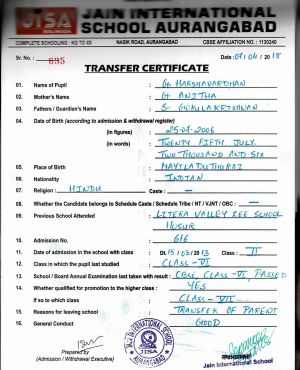 JISA
JAIN INTERNATIONAL
SCHOOL AURANGABAD
COMPLETE SCHOOLING : KG TO XII NASIK ROAD, AURANGABAD CBSE AFFILIATION NO. : 1130240
Sr. No. : 695 Date : 09/04/2018
TRANSFER CERTIFICATE
01. Name of Pupil G. HARSHAVARDHAN
02. Mother's Name G. ANITHA
03. Fathers / Guardian's Name S. GOKULAKRISHNAN
04. Date of Birth (according to admission & withdrawal register)
(in figures) 25-07-2006
(in words) TWENTY FIFTH JULY
TWO THOUSAND AND SIX
05. Place of Birth MAYILADUTHURAI
06. Nationality INDIAN
07. Religion : HINDU Caste : —
08. Whether the Candidate belongs to Schedule Caste / Schedule Tribe / NT / VJNT / OBC : —
09. Previous School Attended LITERA VALLEY ZEE SCHOOL
HOSUR
10. Admission No. 616
11. Date of admission in the school with class Dt. 15/03/2013 Class II
12. Class in which the pupil last studied CLASS-VI
13. School / Board Annual Examination last taken with result : CBSE, CLASS-VI, PASSED
14. Whether qualified for promotion to the higher class : YES
If so to which class CLASS-VII
15. Reasons for leaving school TRANSFER OF PARENT
16. General Conduct GOOD
JAIN INTERNATIONAL SCHOOL
JISA
Prepared by
(Admission / Withdrawal Executive)
Jain International School